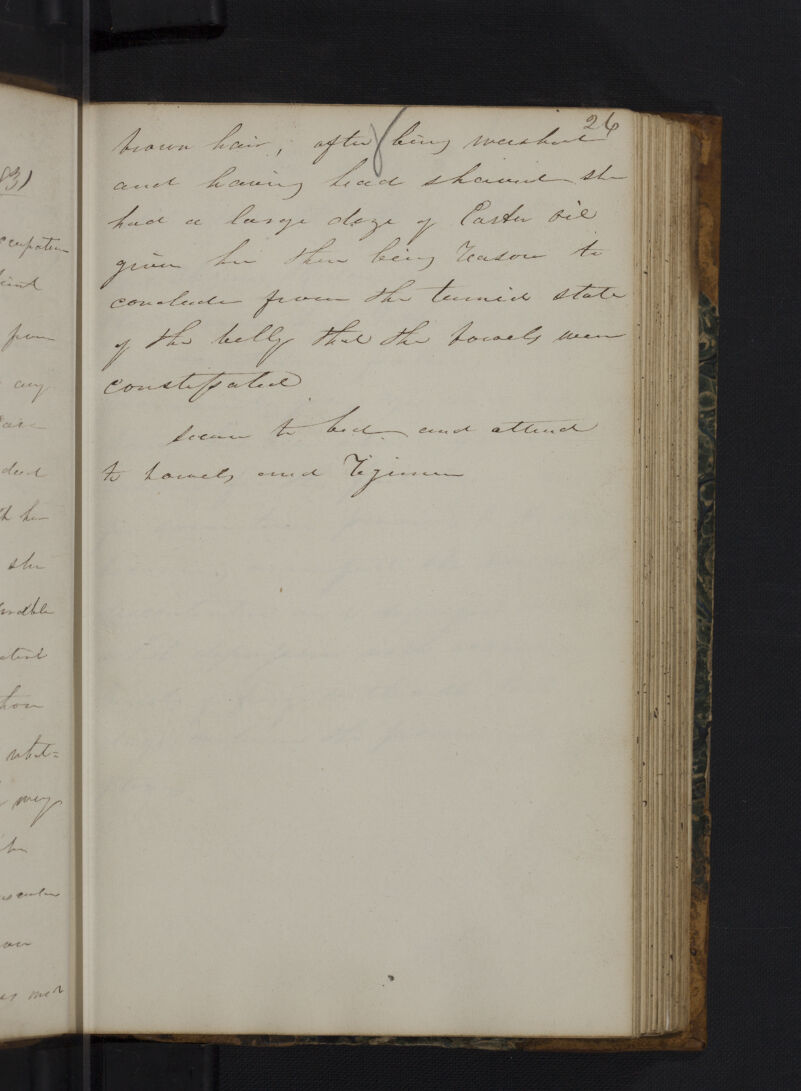 26
brown hair, after being washed
and having head shaved she
had a large doze of Castor oil
given her there being reason to
conclude from the tumid state
of the belly that the bowels were
constipated
to bed and attend
to bowels and regimen
831
any
she
what=
may